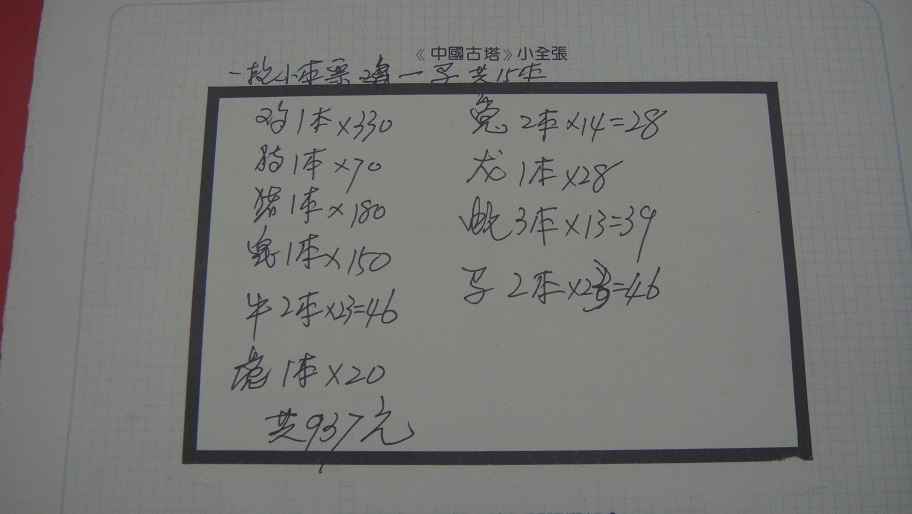 《中國古塔》小全張
一轮小本票 鸡一马 共15本
鸡1本×330
狗1本×70
猪1本×180
鼠1本×150
牛2本×23=46
虎1本×20
共937元
兔2本×14=28
龙1本×28
蛇3本×13=39
马2本×23=46